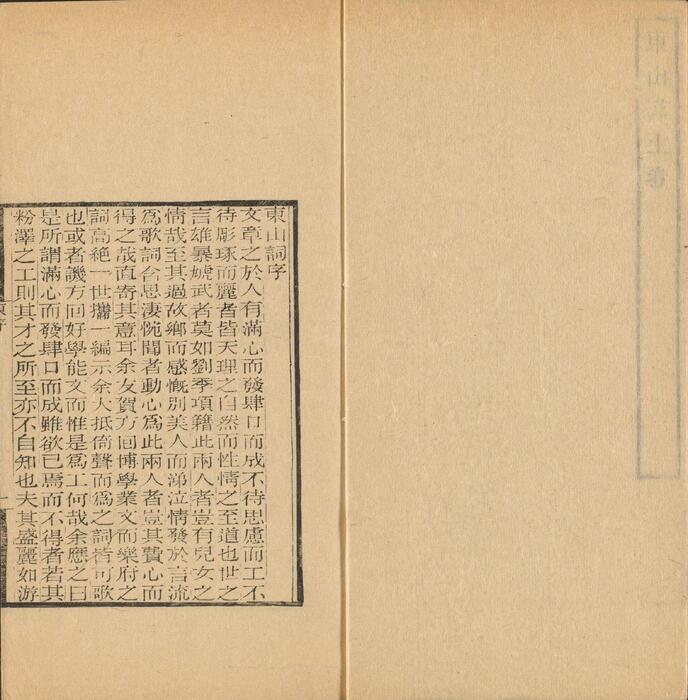 東山詞上卷
東山詞序
文章之於人有滿心而發肆口而成不待思慮而工不
待彫琢而麗者皆天理之自然而性情之至道也世之
言雄暴虓武者莫如劉季項籍此兩人者豈有兒女之
情哉至其過故鄉而感慨別美人而涕泣情發於言流
爲歌詞含思淒惋聞者動心爲此兩人者豈其費心而
得之哉直寄其意耳余友賀方回博學業文而樂府之
詞高絕一世攜一編示余大抵倚聲而爲之詞皆可歌
也或者譏方回好學能文而惟是爲工何哉余應之曰
是所謂滿心而發肆口而成雖欲已焉而不得者若其
粉澤之工則其才之所至亦不自知也夫其盛麗如游